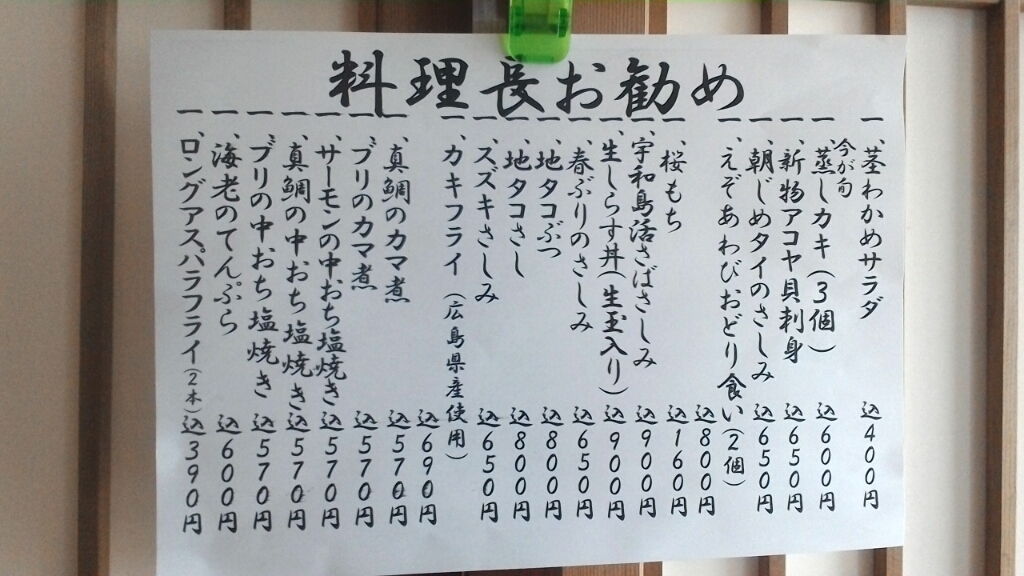 料理長お勧め
一、茎わかめサラダ 込400円
今が旬
一、蒸しカキ(3個) 込600円
一、新物アコヤ貝刺身 込650円
一、朝じめタイのさしみ 込650円
一、えぞあわびおどり食い(2個)
込800円
一、桜もち 込160円
一、宇和島活さばさしみ 込900円
一、生しらす丼(生玉入り) 込900円
一、春ぶりのさしみ 込650円
一、地タコぶつ 込800円
一、地タコさし 込800円
一、スズキさしみ 込650円
一、カキフライ(広島県産使用)
込690円
一、真鯛のカマ煮 込570円
一、ブリのカマ煮 込570円
一、サーモンの中おち塩焼き 込570円
一、真鯛の中おち塩焼き 込570円
一、ブリの中おち塩焼き 込570円
一、海老のてんぷら 込600円
一、ロングアスパラフライ(2本) 込390円